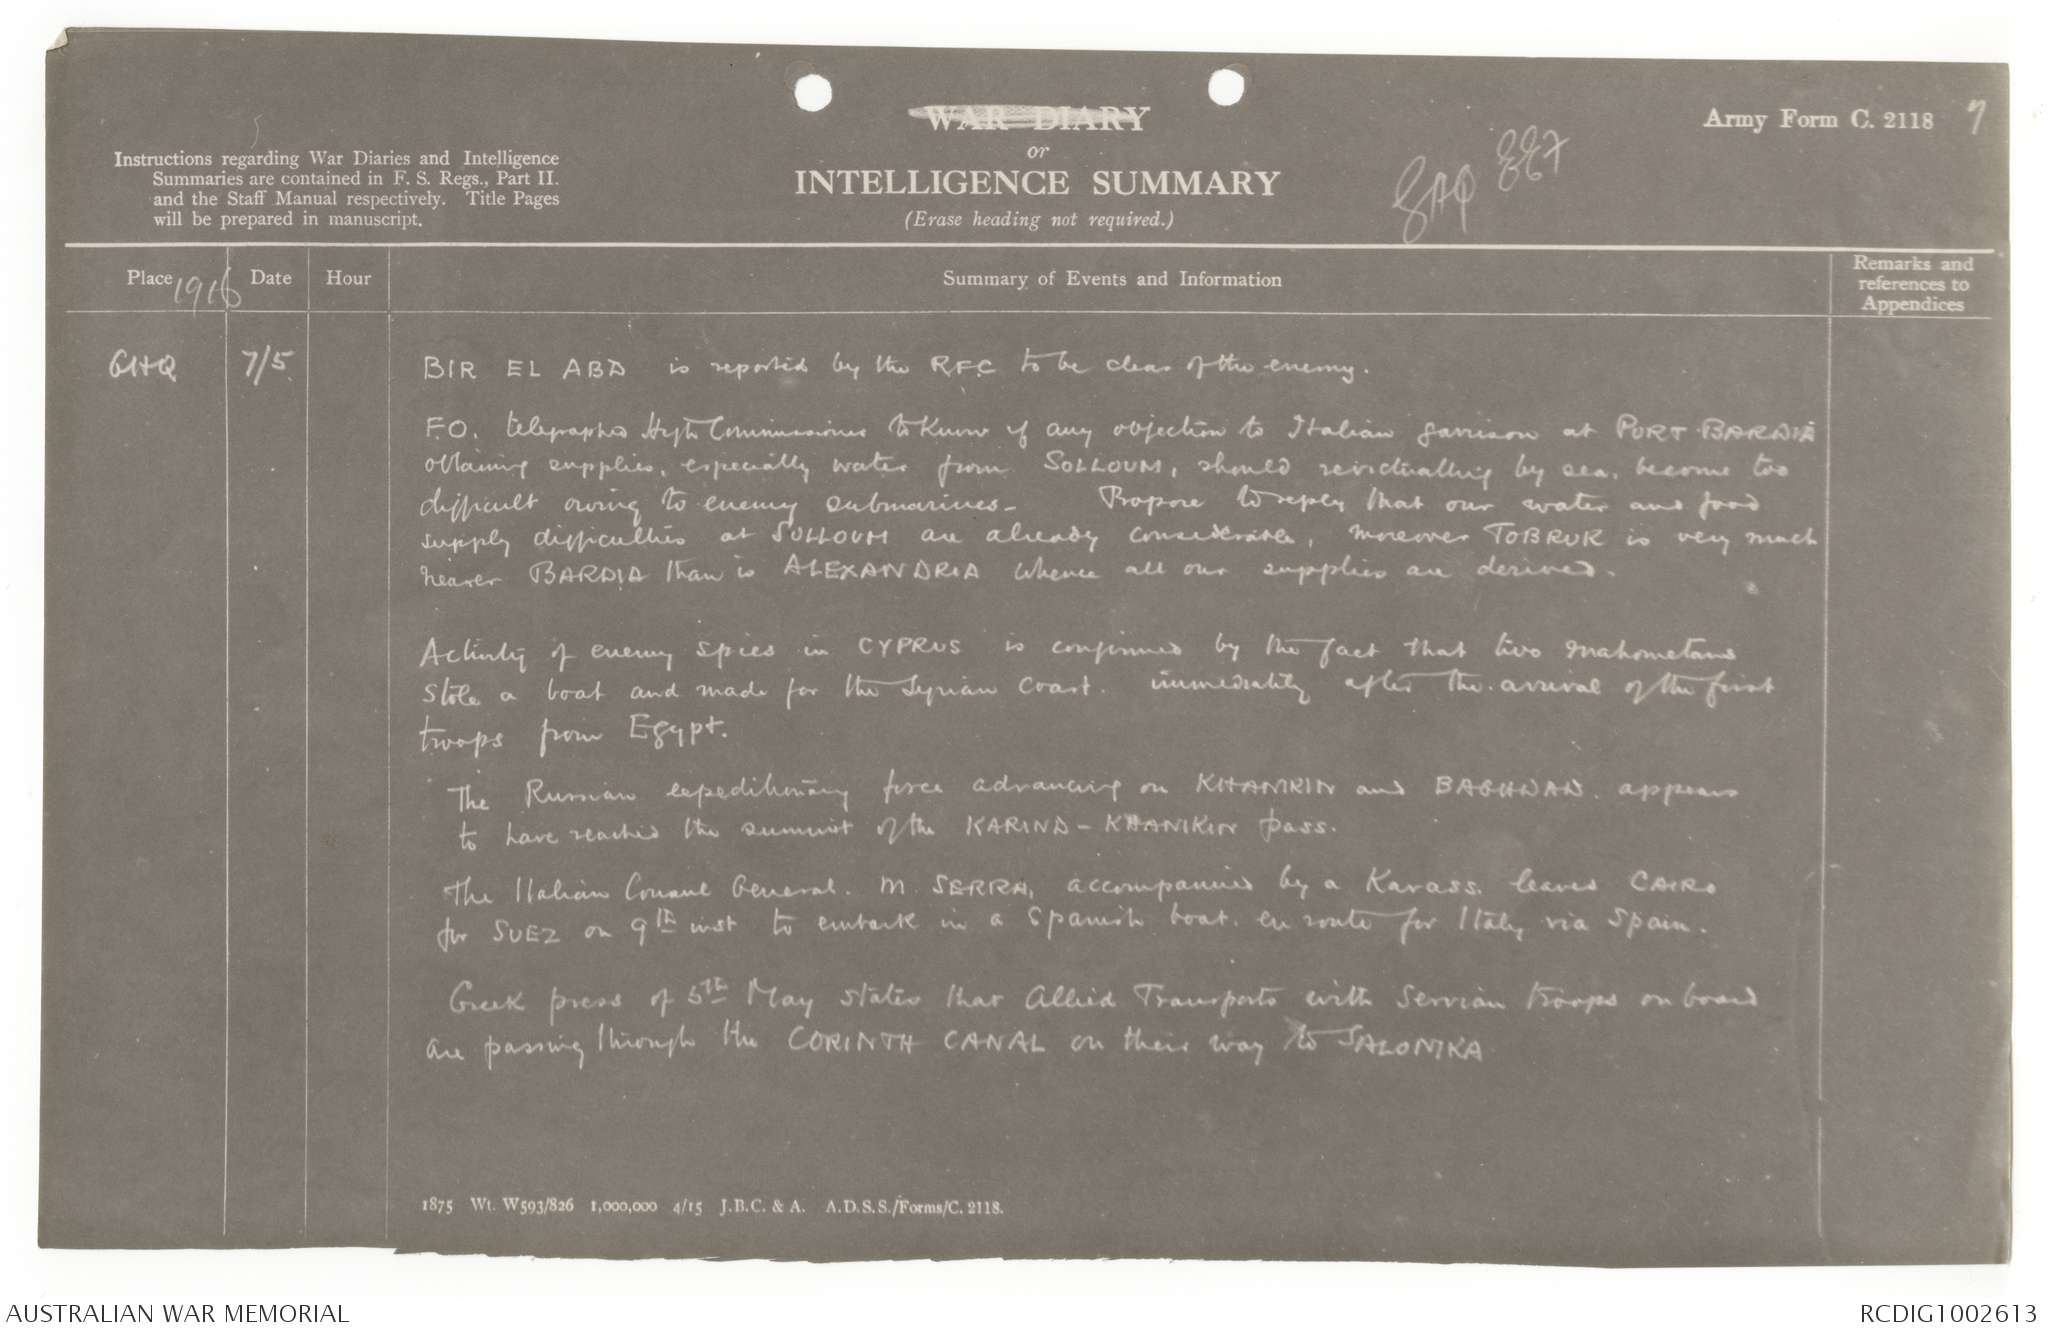 WAR DIARY
or
INTELLIGENCE SUMMARY
(Erase heading not required.)
Army Form C. 2118
7
Instructions regarding War Diaries and Intelligence
Summaries are contained in F. S. Regs., Part II.
and the Staff Manual respectively. Title Pages
will be prepared in manuscript.
Place
1916
Date
Hour
Summary of Events and Information
Remarks and
references to
Appendices
GHQ
7/5
BIR EL ABD is reported by the RFC to be clear of the enemy.
F.O. telegraphs High Commissioner to know if any objection to Italian garrison at PORT BARDIA
obtaining supplies, especially water from SOLLOUM, should revictualling by sea, become too
difficult owing to enemy submarines - Propose to reply that our water and food
supply difficulties at SOLLOUM are already considerable, moreover TOBRUK is very much
nearer BARDIA than is ALEXANDRIA whence all our supplies are derived.
Activity of enemy spies in CYPRUS is confirmed by the fact that two Mahometans
stole a boat and made for the Syrian Coast. immediately after the arrival of the first
troops from Egypt.
The Russian expeditionary force advancing on KHANIKIN and BAGHDAD. appears
to have reached the summit of the KARIND - KHANIKIN pass.
The Italian Consul General. M. SERRA, accompanied by a Kavass. leaves CAIRO
for SUEZ on 9th inst to embark in a Spanish boat. en route for Italy via Spain.
Greek press of 5th May states that Allied Transports with Servian troops on board
are passing through the CORINTH CANAL on their way to SALONIKA
1875 Wt. W593/826 1,000,000 4/15 J.B.C. & A. A.D.S.S./Forms/C. 2118.
AUSTRALIAN WAR MEMORIAL
RCDIG1002613